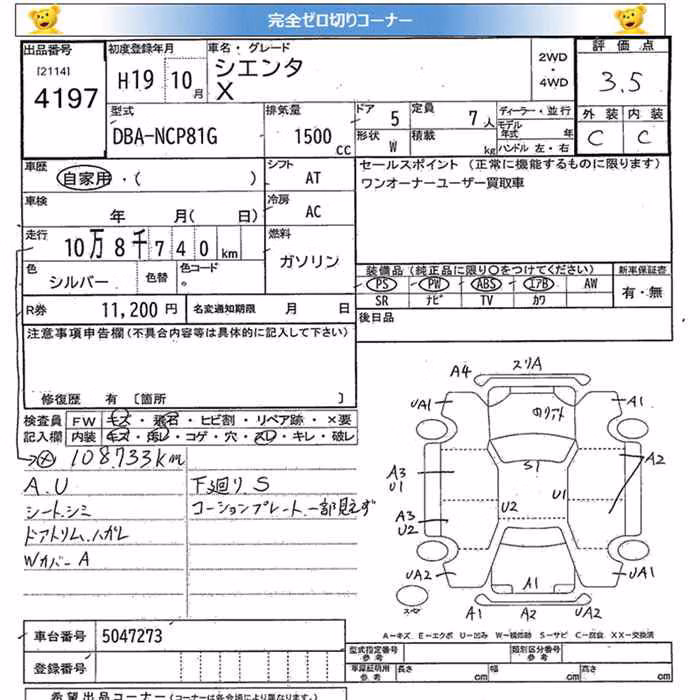 完全ゼロ切りコーナー
出品番号
[2114]
4197
初度登録年月
H19 10月
車名・グレード
シエンタ
X
2WD
・
4WD
評価点
3.5
外装 内装
C C
型式
DBA-NCP81G
排気量
1500 cc
ドア 5
定員 7人
形状 W
積載 kg
ディーラー・並行
モデル年式 年
ハンドル 左・右
車歴
自家用・( )
シフト
AT
セールスポイント (正常に機能するものに限ります)
ワンオーナーユーザー買取車
車検
年 月( 日)
冷房
AC
走行
10万8千740km
燃料
ガソリン
色
シルバー
色替
色コード
装備品 (純正品に限り○をつけてください)
PS PW ABS エアB AW
SR ナビ TV カワ
新車保証書
有・無
R券 11,200 円
名変通知期限 月 日
後日品
注意事項申告欄(不具合内容等は具体的に記入して下さい)
修復歴 有 [箇所 ]
検査員
記入欄
FW キズ・飛石・ヒビ割・リペア跡・×要
内装 キズ・汚レ・コゲ・穴・スレ・キレ・破レ
108.733km
A.U
シート.シミ
ドアトリム.ハガレ
Wカバー A
下廻り.S
コーションプレート.一部見えず
A4 スリA
UA1 A1
A3
U1
A2
S1
U1
U2
A3
U2
UA2 A1 UA1
スペア A1 A2 UA2
A−キズ E−エクボ U−凹み W−補修跡 S−サビ C−腐食 XX−交換済
車台番号 5047273
登録番号
型式指定番号
参考
類別区分番号
参考
車庫証明用
参考
長さ 幅 高さ
希望出品コーナー (コーナーは各会場により異なります。)